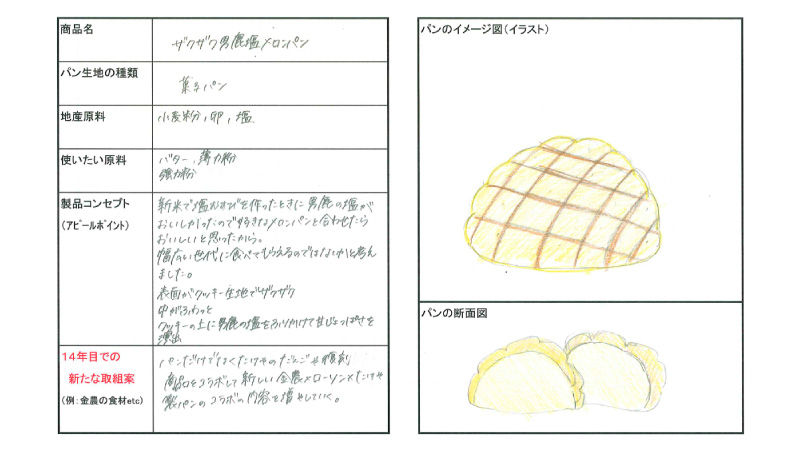 商品名
ザクザク男鹿塩メロンパン
パン生地の種類
菓子パン
地産原料
小麦粉,卵,塩
使いたい原料
バター,薄力粉
強力粉
製品コンセプト
(アピールポイント)
新米で塩おむすびを作ったときに男鹿の塩が
おいしかったので好きなメロンパンと合わせたら
おいしいと思ったから。
幅広い世代に食べてもらえるのではないかと考え
ました。
表面がクッキー生地でザクザク
中がふわっと
クッキーの上に男鹿の塩をふりかけて甘じょっぱさを
演出
14年目での
新たな取組案
(例:金農の食材etc)
パンだけでなくたけやのだんごや
商品をコラボして新しい金農×ローソン×たけや
製パンのコラボの内容を増やしていく。
パンのイメージ図(イラスト)
パンの断面図